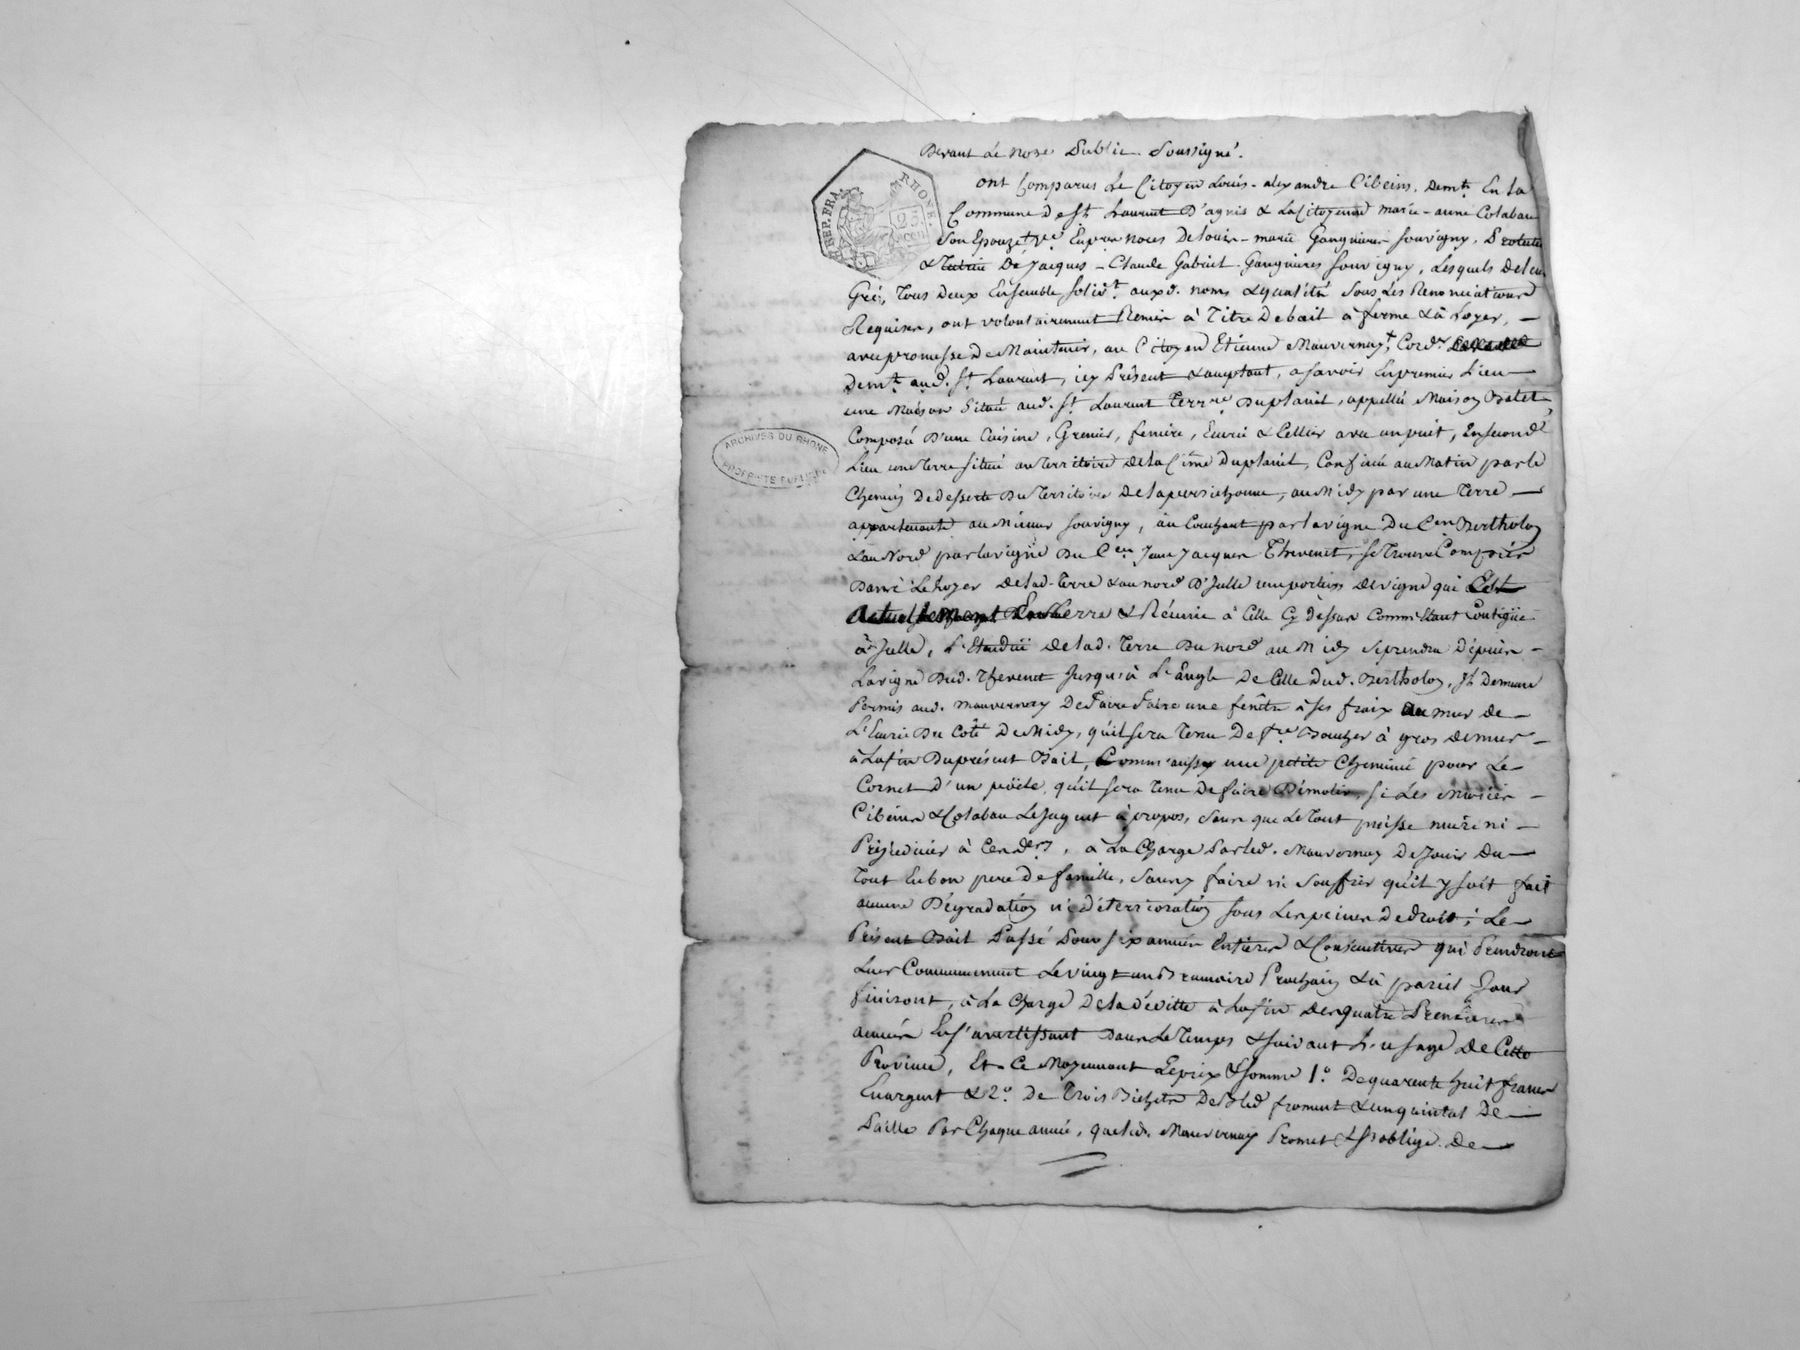 Devant Le no.re Public Soussigné.
REP. FRA. RHONE.
ont Comparus Le Citoyen Louis-alexandre Cibeins, Demt. En la
Commune De St. Laurent D'agnis & La Citoyenne marie-anne Colabau
Son Epouze, Louis-marie Ganguieres Souvigny, Protuteur
& De Jacques-Claude Gabriel Ganguieres Souvigny, Lesquels De leur
Gré, Tous Deux Ensemble solid.t auxd. noms & qualités Sous Les Renonciations
Requises, ont volontairement Remis à Titre De bail à ferme & à Loyer,
avec promesse De Maintenir, au Citoyen Etienne Mauvernay, Cord.r
Demt. aud. St. Laurent, icy Présent & acceptant, a savoir En premier Lieu
une Maison Située aud. St. Laurent Terr.re Duplanil, appellée Maison Batet,
Composée D'une Cuisine, Grenier, feniere, Ecurie & Cellier avec un puit, En second
Lieu une Terre située au Territoire De la Cime Duplanil, Confinée au Matin par le
Chemin De desserte Du Territoire De la, au Midy par une Terre
appartenante au Mineur Souvigny, au Couchant par la vigne Du C.en Bertholon
& au Nord par la vigne Du C.en Jean Jacques Thevenet, Se Trouve Comprise
Dans Le De lad. Terre & au nord D'Icelle une portion De vigne qui Est
Actuellement En Terre & Réunie à Celle Cy dessus Comm'Etant Contigüe
à Icelle, L'Etendüe De lad. Terre Du nord au Midy Se prendra Depuis
La vigne Dud. Thevenet Jusqu'à L'angle De Celle Dud. Bertholon, Il Demeure
Permis aud. Mauvernay De faire faire une fenêtre à ses fraix au mur de
L'Ecurie Du Coté De Midy, qu'il sera Tenu De f.re Boucher à gros de mur
à La fin Du présent Bail, Comm'aussy une petite Cheminée pour Le
Cornet d'un poële, qu'il sera Tenu De faire Démolir, si Les Mariés
Cibeins & Colabau Le Jugent à propos, Sans que Le Tout puisse nuire ni
Préjudicier à Ces der.s, à La Charge Par led. Mauvernay De Jouir Du
Tout En bon pere De famille, Sans y faire ni Souffrir qu'il y soit fait
aucune Dégradation ni déterrioration sous Les peines De droit; Le
Présent Bail Passé Pour six années Entieres & Consecutives qui Prendront
Leur Commencement Le vingt un Brumaire Prochain & à pareil Jour
finiront, à La Charge De la d'editte à La fin Des quatre Premieres
années En s'avertissant Dans Le Temps & suivant L'usage De Cette
Province, Et Ce Moyennant Le prix & Somme 1.° De quarente huit francs
En argent & 2.° De Trois Bichets De Bled froment & un quintal De
Paille Par Chaque année, que led. Mauvernay Promet & S'oblige De
ARCHIVES DU RHONE
PROPRIETE PUBLIQUE